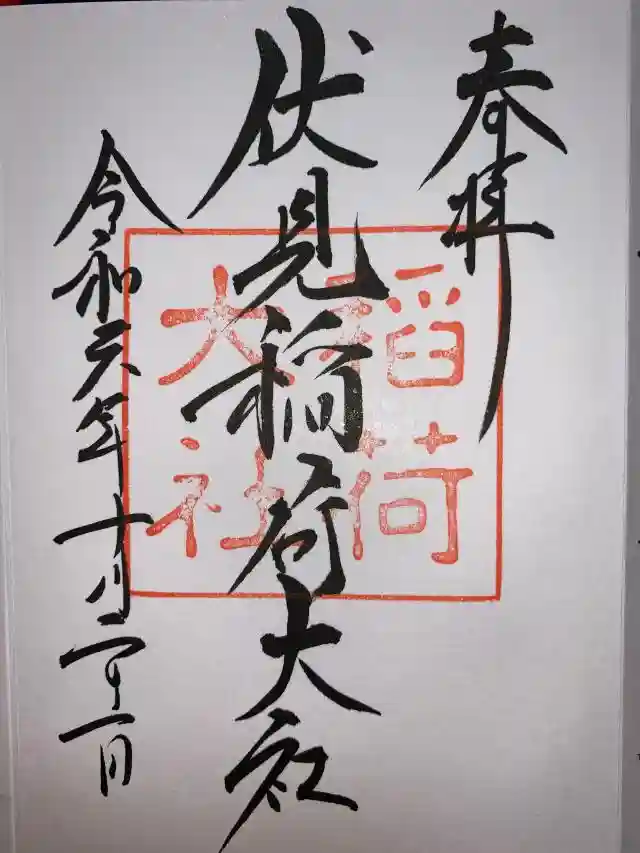 奉拝
伏見稲荷大社
令和六年十月二十一日
稲荷
大社